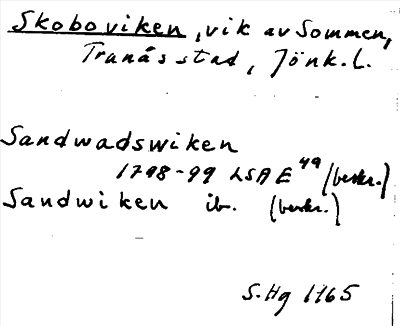 Skoboviken, vik av Sommen,
Tranås stad, Jönk.L.
Sandwadswiken
1798-99 LSA E 49 (beskr.)
Sandwiken ib. (beskr.)
S.Hg 1165